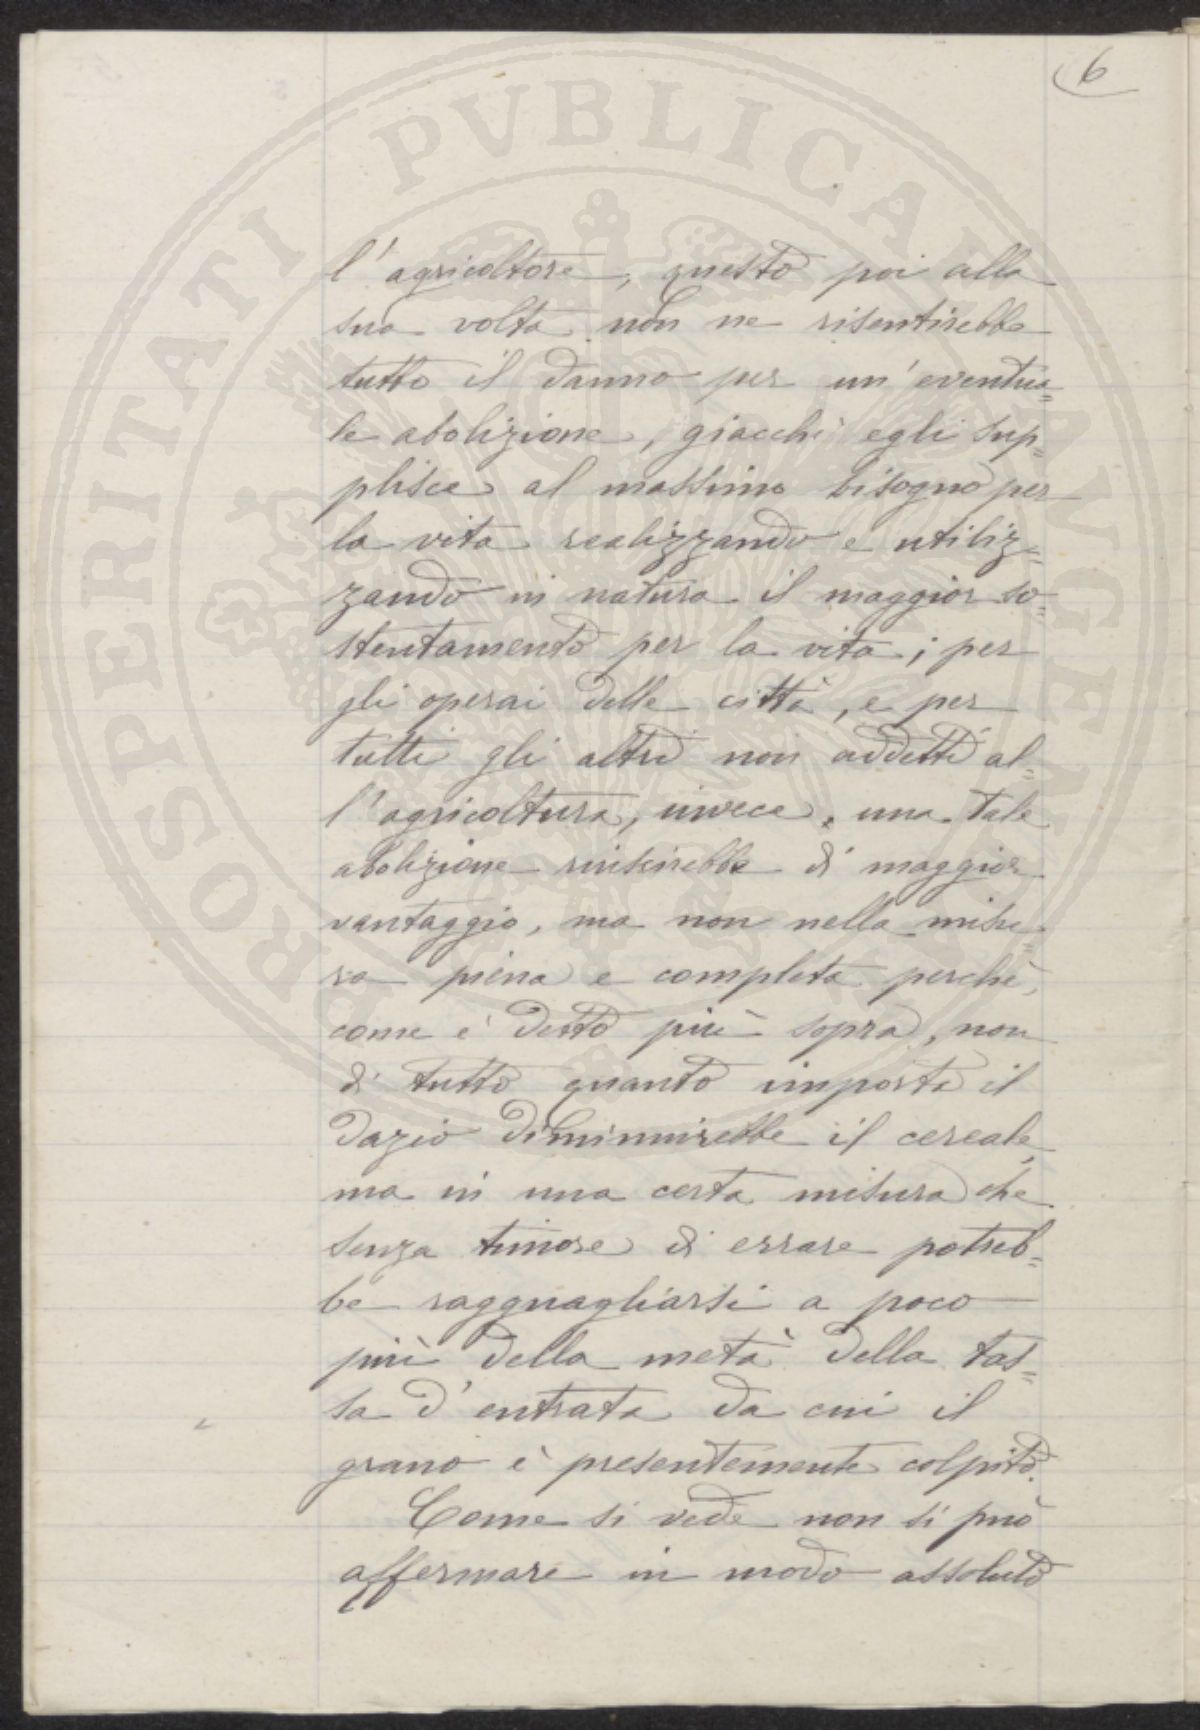 6
l'agricoltore, questo poi alla
sua volta non ne risentirebbe
tutto il danno per un'eventua=
le abolizione, giacchè egli sup=
plisce al massimo bisogno per
la vita realizzando e utiliz=
zando in natura il maggior so=
stentamento per la vita; per
gli operai delle città, e per
tutti gli altri non addetti al=
l'agricoltura, invece, una tale
abolizione riuscirebbe di maggior
vantaggio, ma non nella misu=
ra piena e completa perchè,
come è detto più sopra, non
di tutto quanto importa il
dazio diminuirebbe il cereale,
ma in una certa misura che
senza timore di errare potreb=
be ragguagliarsi a poco
più della metà della tas=
sa d'entrata da cui il
grano è presentemente colpito.
Come si vede non si può
affermare in modo assoluto
PROSPERITATI PVBLICAE AVGENDAE